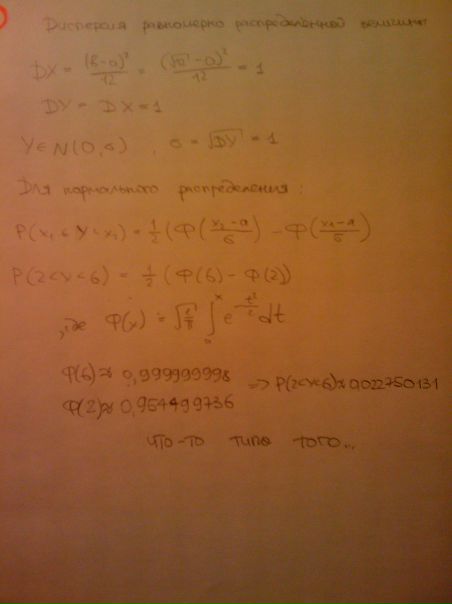 Дисперсия равномерно распределенной величины
DX = (b-a)²/12 = (√a - a)²/12 = 1
DY = DX = 1
Y ∈ N(0, σ) , σ = √DY = 1
Для нормального распределения:
P(x₁ < Y < x₂) = 1/2 (Φ((x₂-a)/σ) - Φ((x₁-a)/σ))
P(2<Y<6) = 1/2 (Φ(6) - Φ(2))
, где Φ(x) = √(2/π) ∫₀ˣ e^(-t²/2) dt
Φ(6) ≈ 0,999999998
Φ(2) ≈ 0,954499736
=> P(2<Y<6) ≈ 0,022750131
что-то типо того...